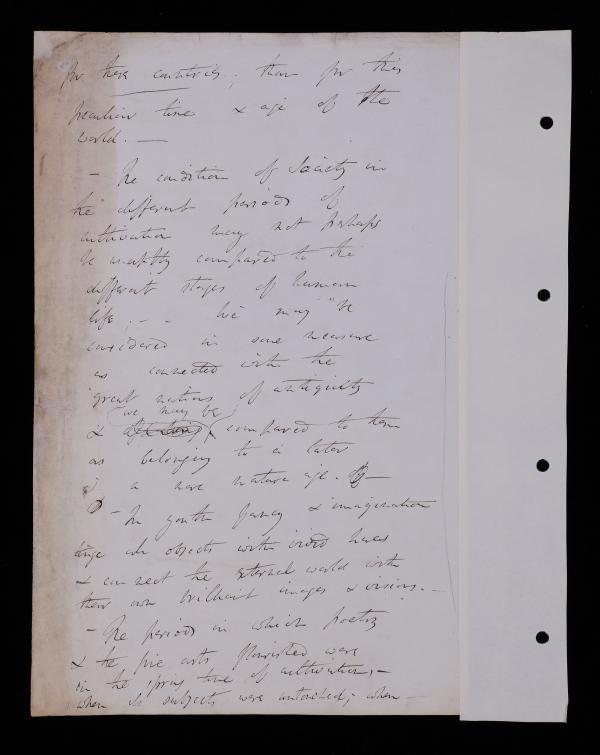 for these countries; than for this
peculiar time & age of the
world. —
— The condition of Society in
the different periods of
cultivation may not perhaps
be unaptly compared to the
different stages of human
life. - - We may be
considered in some measure
as connected with the
great nations of antiquity
we may be
& compared to them
as belonging to a later
& a more mature age. —
— In youth fancy & imagination
tinge all objects with vivid hues
& connect the external world with
their own brilliant images & visions. —
— The periods in which poetry
& the fine arts flourished were
in the spring time of cultivation; —
when its subjects were untouched; when —